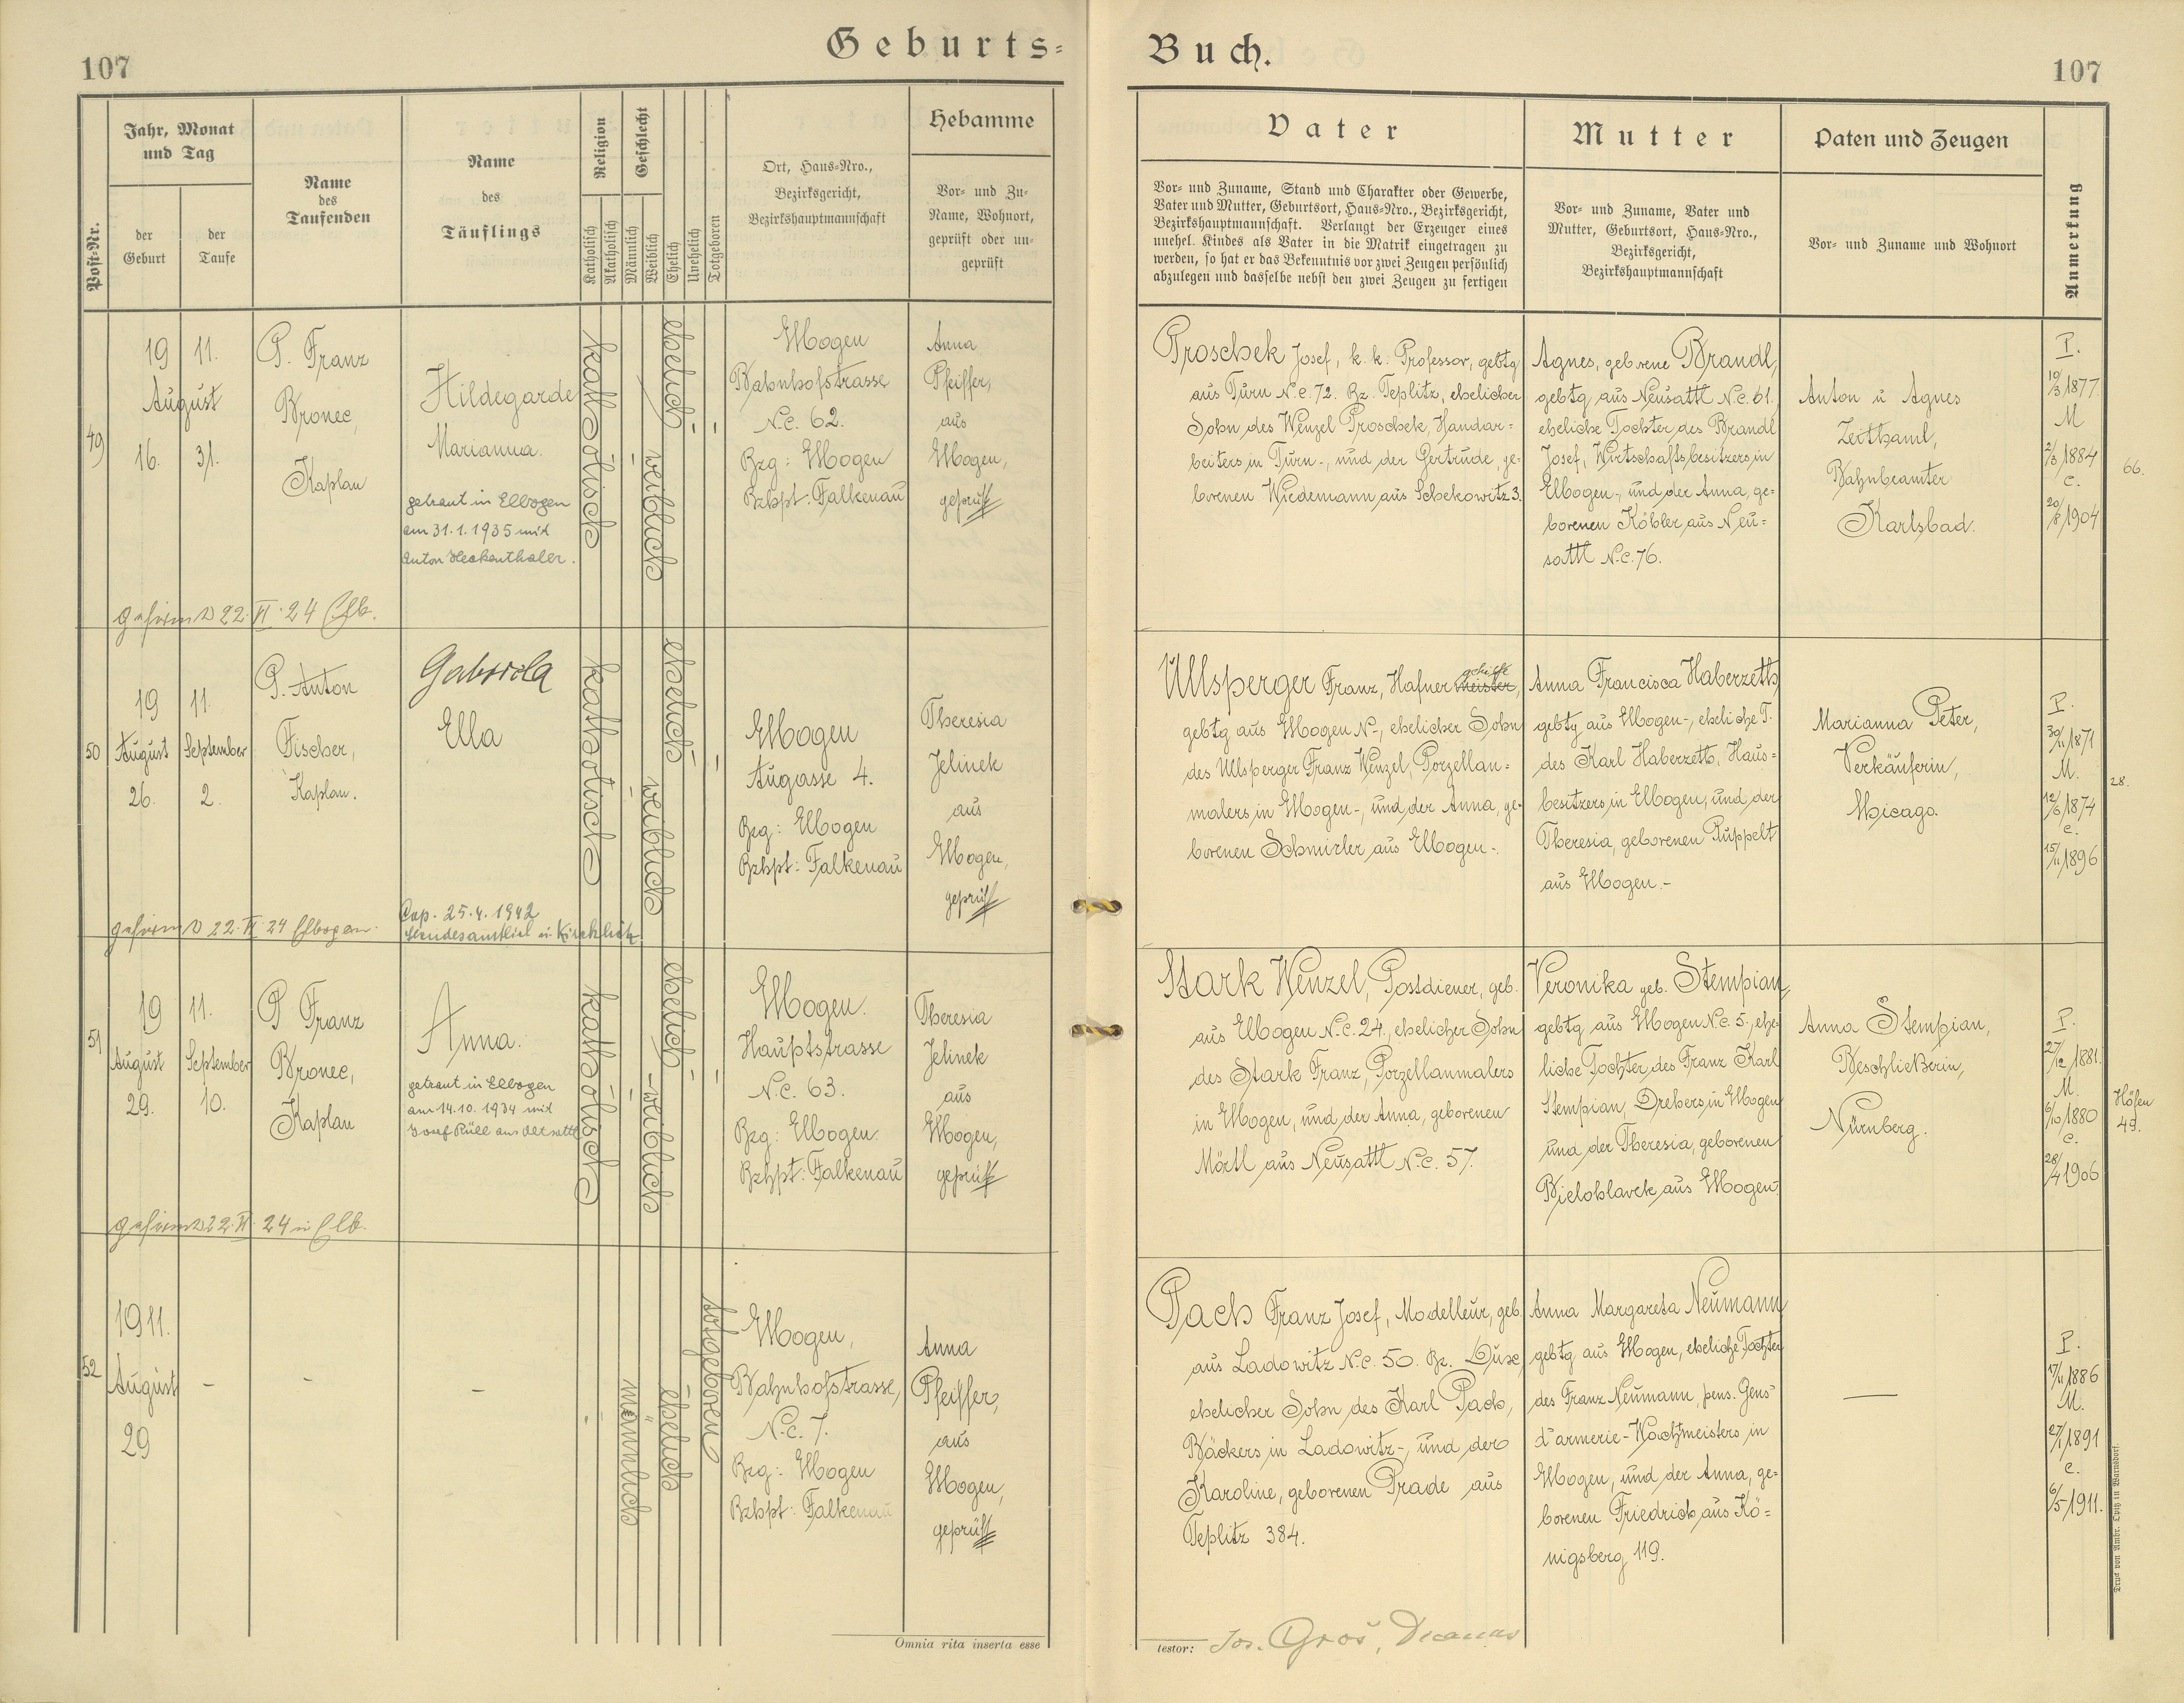 107
Geburts=
Buch.
107
Post-Nr.
Jahr, Monat
und Tag
der
Geburt
der
Taufe
Name
des
Taufenden
Name
des
Täuflings
Religion
Katholisch
Akatholisch
Geschlecht
Männlich
Weiblich
Ehelich
Unehelich
Totgeboren
Ort, Haus-Nro.,
Bezirksgericht,
Bezirkshauptmannschaft
Hebamme
Vor- und Zu-
Name, Wohnort,
geprüft oder un-
geprüft
Vater
Vor- und Zuname, Stand und Charakter oder Gewerbe,
Vater und Mutter, Geburtsort, Haus-Nro., Bezirksgericht,
Bezirkshauptmannschaft. Verlangt der Erzeuger eines
unehel. Kindes als Vater in die Matrik eingetragen zu
werden, so hat er das Bekenntnis vor zwei Zeugen persönlich
abzulegen und dasselbe nebst den zwei Zeugen zu fertigen
Mutter
Vor- und Zuname, Vater und
Mutter, Geburtsort, Haus-Nro.,
Bezirksgericht,
Bezirkshauptmannschaft
Paten und Zeugen
Vor- und Zuname und Wohnort
Anmerkung
49
19 11.
August
16. 31.
P. Franz
Bronec,
Kaplan
Hildegarde
Marianna.
getraut in Elbogen
am 31.1.1935 mit
Anton Heckenthaler.
katholisch
-
weiblich
ehelich
-
-
Elbogen
Bahnhofstrasse
N.c. 62.
Bzg: Elbogen
Bzhpt: Falkenau
Anna
Pfeiffer,
aus
Elbogen,
geprüft
Proschek Josef, k. k. Professor, gebtg
aus Turn N.c. 72. Bz. Teplitz, ehelicher
Sohn des Wenzel Proschek, Handar=
beiters in Turn-, und der Gertrude, ge-
borenen Wiedemann aus Schekowitz 3.
Agnes, geborene Brandl,
gebtg aus Neusattl N.c. 61.
eheliche Tochter des Brandl
Josef, Wirtschaftsbesitzers in
Elbogen-, und der Anna, ge=
borenen Köhler aus Neu=
sattl N.c. 76.
Anton u Agnes
Zeithaml,
Bahnbeamter
Karlsbad.
P.
19/3 1877
M
2/3 1884
C.
20/8 1904
66.
gefirmt 22. VI. 24 Elb.
50
19 11.
August September
26. 2.
P. Anton
Fischer,
Kaplan.
Gabriela
Ella
Cop. 25.4.1942
standesamtlich u. kirchlich
katholisch
-
weiblich
ehelich
-
Elbogen
Augasse 4.
Bzg: Elbogen
Bzhpt: Falkenau
Theresia
Jelinek
aus
Elbogen,
geprüft
gehilfe
Ullsperger Franz, Hafner meister,
gebtg aus Elbogen N-, ehelicher Sohn
des Ullsperger Franz Wenzel, Porzellan=
malers in Elbogen-, und der Anna, ge-
borenen Schmirler aus Elbogen-.
Anna Francisca Haberzeth,
gebtg aus Elbogen-, eheliche T.
des Karl Haberzeth, Haus=
besitzers in Elbogen, und der
Theresia, geborenen Ruppelt
aus Elbogen.-
Marianna Peter,
Verkäuferin,
Chicago.
P.
30/11 1871
M.
12/6 1874
C.
15/11 1896
28.
gefirmt 22. VI. 24 Elbogen.
51
19 11.
August September
29. 10.
P Franz
Bronec,
Kaplan
Anna.
getraut in Elbogen
am 14.10.1934 mit
Josef Rüll aus Altsattl
katholisch
-
- weiblich
ehelich
-
-
Elbogen.
Hauptstrasse
N.c. 63.
Bzg: Elbogen.
Bzhpt: Falkenau
Theresia
Jelinek
aus
Elbogen,
geprüft
Stark Wenzel, Postdiener, geb.
aus Elbogen N.c. 24., ehelicher Sohn
des Stark Franz, Porzellanmalers
in Elbogen, und der Anna, geborenen
Mörtl aus Neusattl N.c. 57.
Veronika geb. Stempian,
gebtg aus Elbogen N.c. 5., ehe-
liche Tochter des Franz Karl
Stempian, Drehers, in Elbogen
und der Theresia, geborenen
Bielohlavek aus Elbogen.
Anna Stempian,
Beschließerin,
Nürnberg.
P.
27/12 1881.
M.
6/10 1880
C.
28/4 1906
Höfen
49.
gefirmt 22. VI. 24 in Elb.
52
1911.
August
29
-
-
-
-
männlich
ehelich
totgeboren
Elbogen,
Bahnhofstrasse,
N.c. 7.
Bzg: Elbogen
Bzhpt: Falkenau
Anna
Pfeiffer,
aus
Elbogen,
geprüft
Pach Franz Josef, Modelleur, geb.
aus Ladowitz N.c. 50. Bz. Dux,
ehelicher Sohn des Karl Pach,
Bäckers in Ladowitz-, und der
Karoline, geborenen Prade aus
Teplitz 384.
Anna Margareta Neumann
gebtg aus Elbogen, eheliche Tochter
des Franz Neumann, pens. Gens=
d'armerie-Wachtmeisters in
Elbogen, und der Anna, ge=
borenen Friedrich aus Kö=
nigsberg 119.
—
P.
17/11 1886
M.
27/1 1891
C.
6/5 1911.
Omnia rita inserta esse
testor: Jos. Groš, Decanus
Druck von Ambr. Opitz in Warnsdorf.